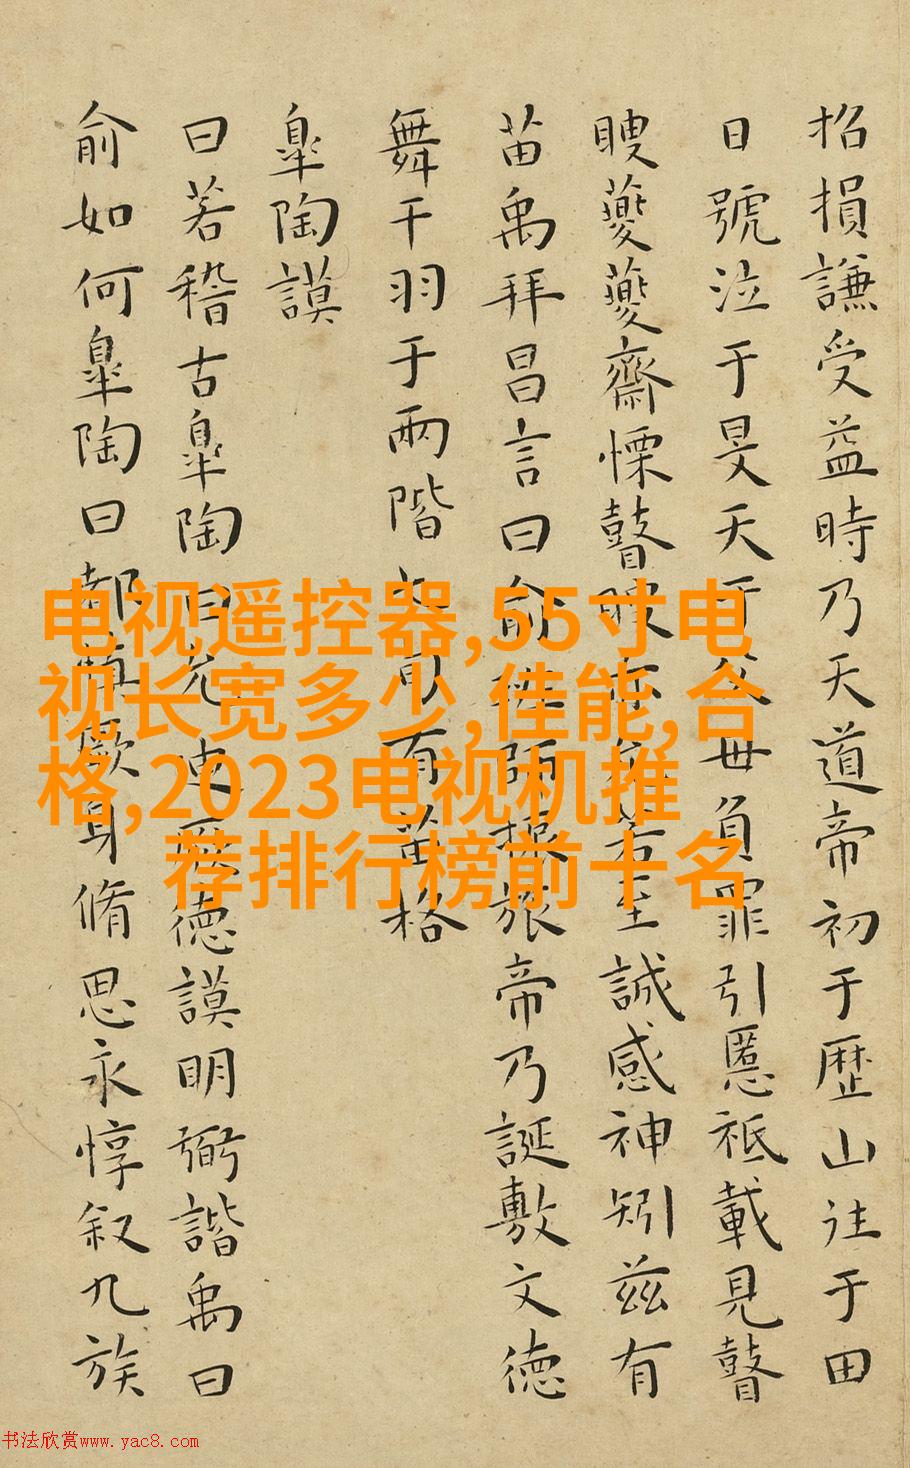 招損謙受益時乃天道帝初于歷山往于田
日號泣于旻天于父毋負罪引慝祗載見瞽
瞍夔夔齋慄瞽瞍亦允若至諴感神矧兹有
苗禹拜昌言曰俞班師振旅帝乃誕敷文德
舞干羽于兩階七旬有苗格
臯陶謨
曰若稽古臯陶曰允迪厥德謨明弼諧禹曰
俞如何臯陶曰都慎厥身脩思永惇叙九族
电视遥控器,55寸电
视长宽多少,佳能,合
格,2023电视机推
荐排行榜前十名
书法欣赏www.yac8.com